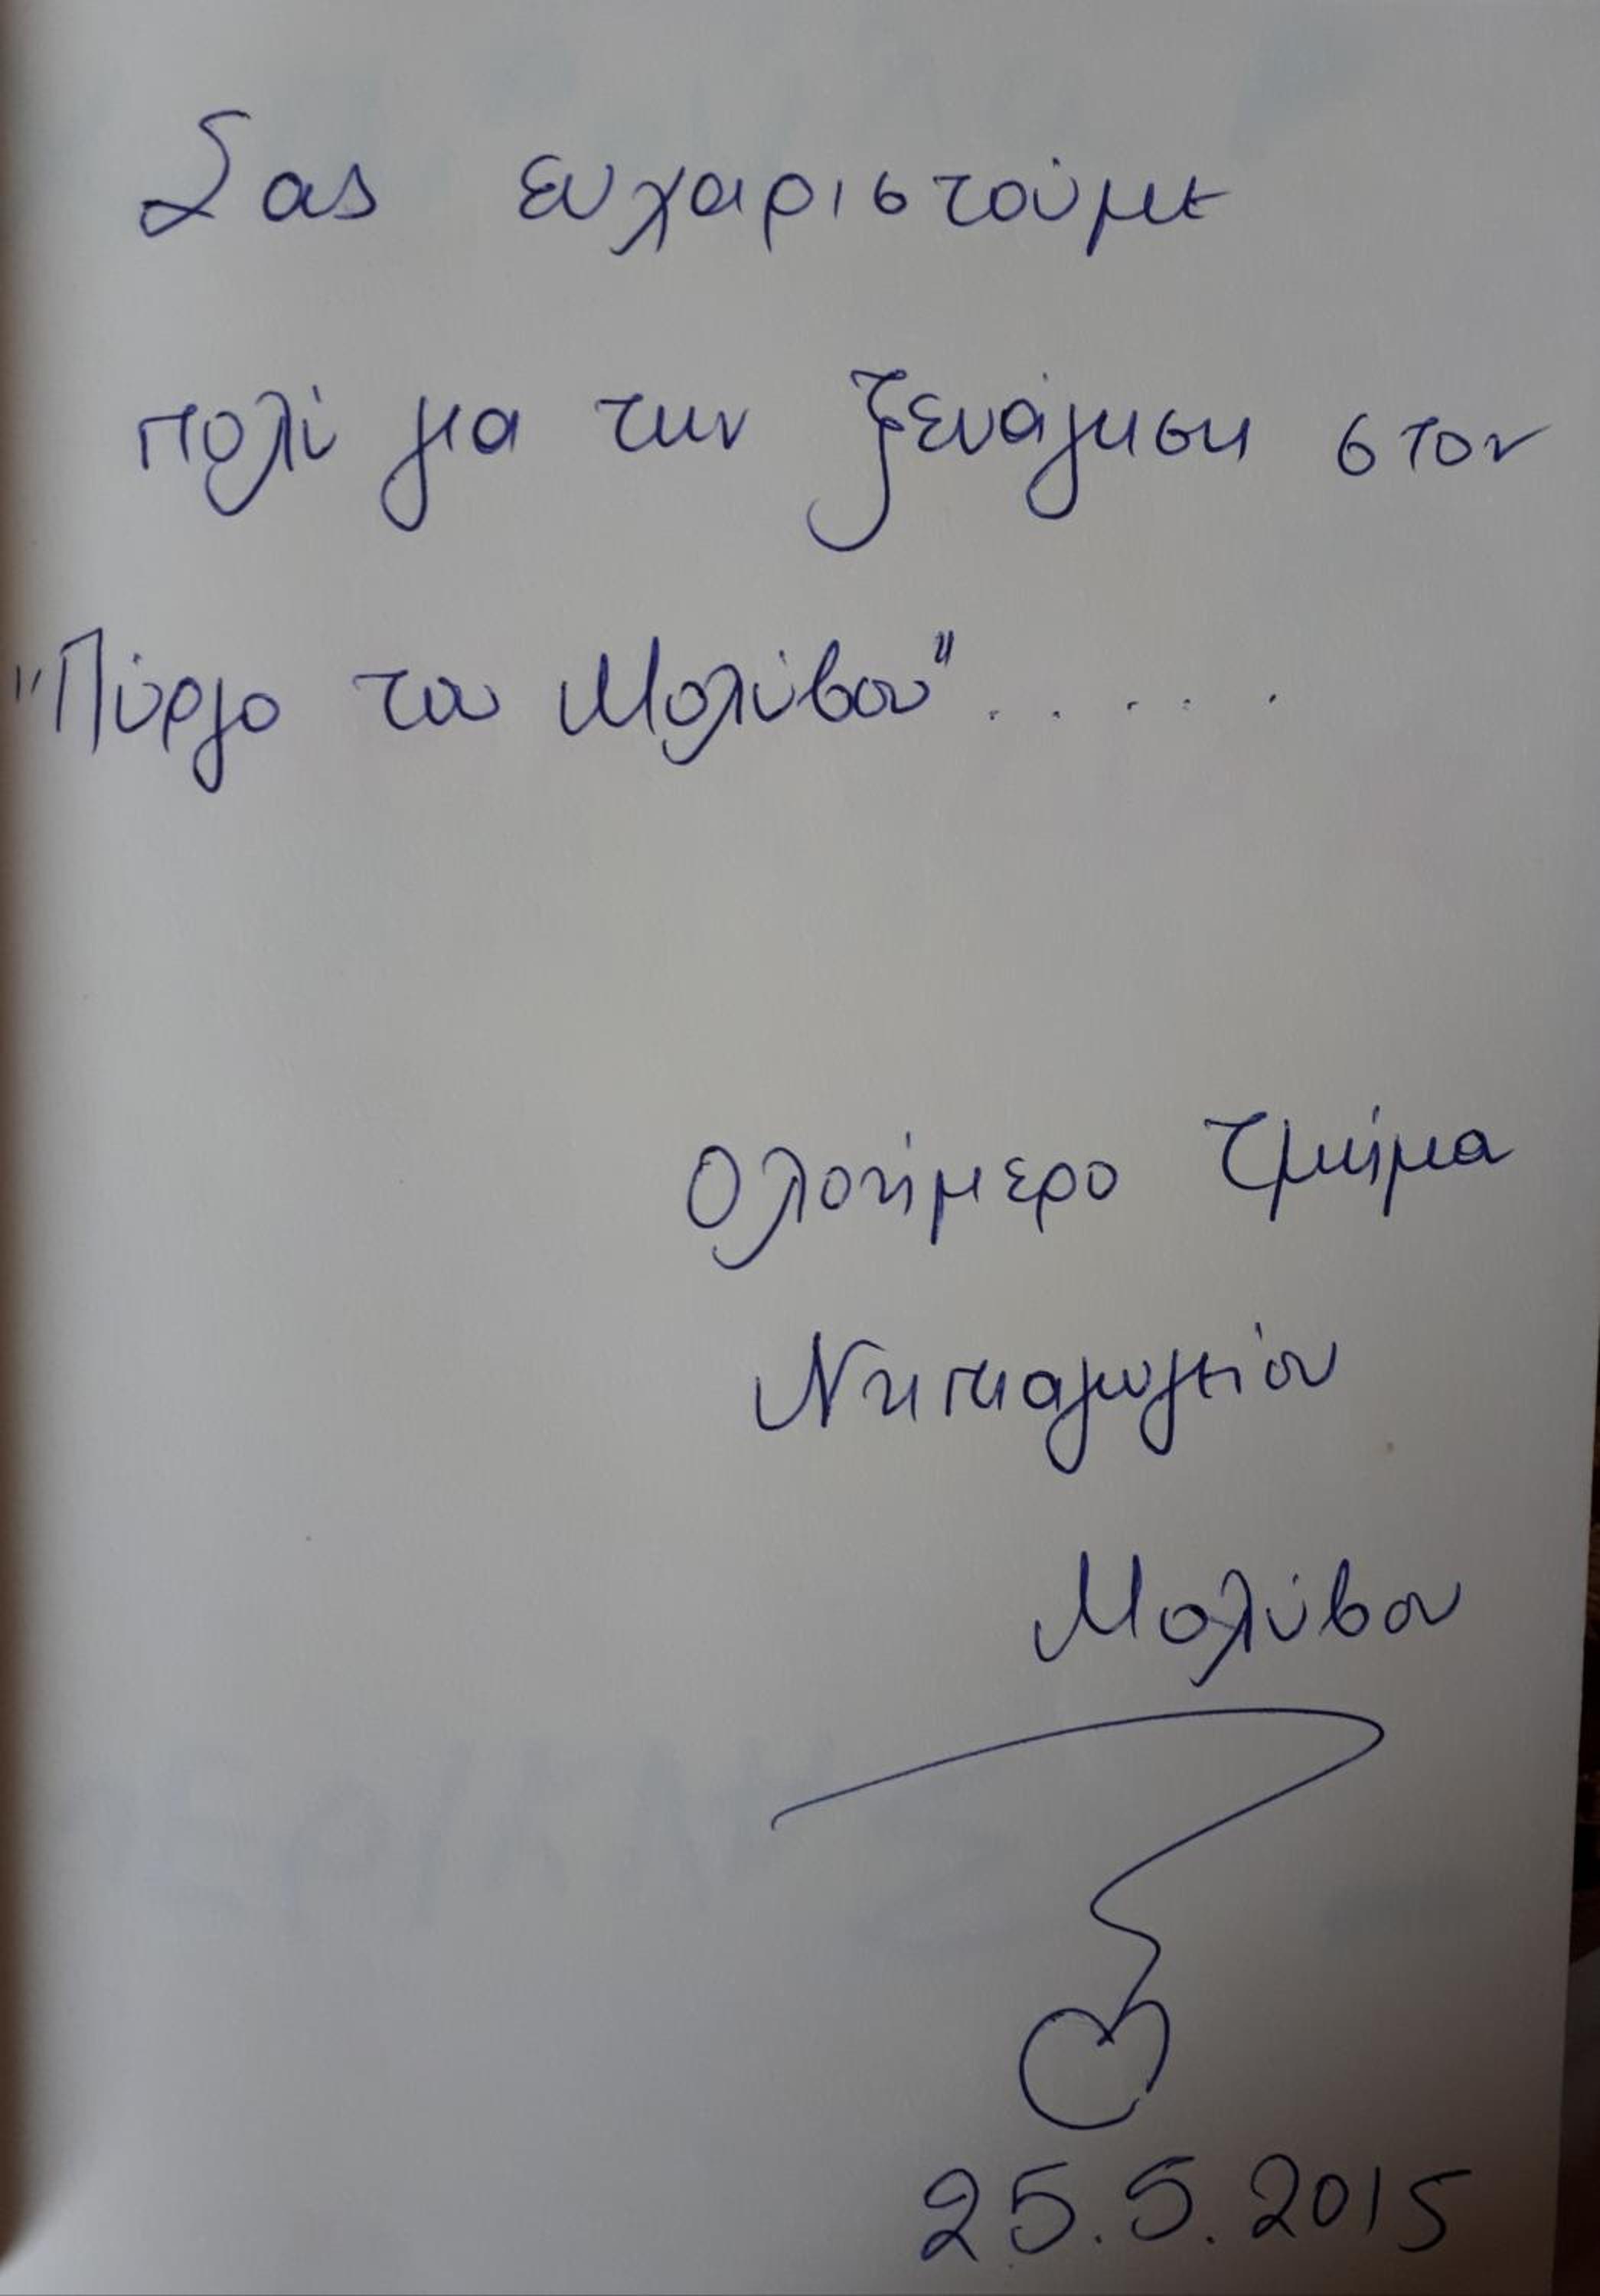 Σας ευχαριστούμε
πολύ για την ξενάγηση στον
"Πύργο του Μολύβου".....
Ολοήμερο τμήμα
Νηπιαγωγείου
Μολύβου
25.5.2015